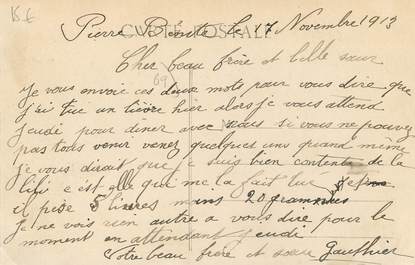 B.E
Pierre Bénite le 17 Novembre 1913
CARTE POSTALE
Cher beau frère et belle sœur
69
Je vous envoie ces deux mots pour vous dire que
j'ai tué un lièvre hier alors je vous attend
jeudi pour diner avec nous si vous ne pouvez
pas tous venir venez quelques uns quand même
je vous dirait que je suis bien contente de la
Lili c est elle qui me la fait tuer
il pèse 5 livres moins 20 grammes
Je ne vois rien autre a vous dire pour le
moment en attendant jeudi
Votre beau frère et sœur Gauthier